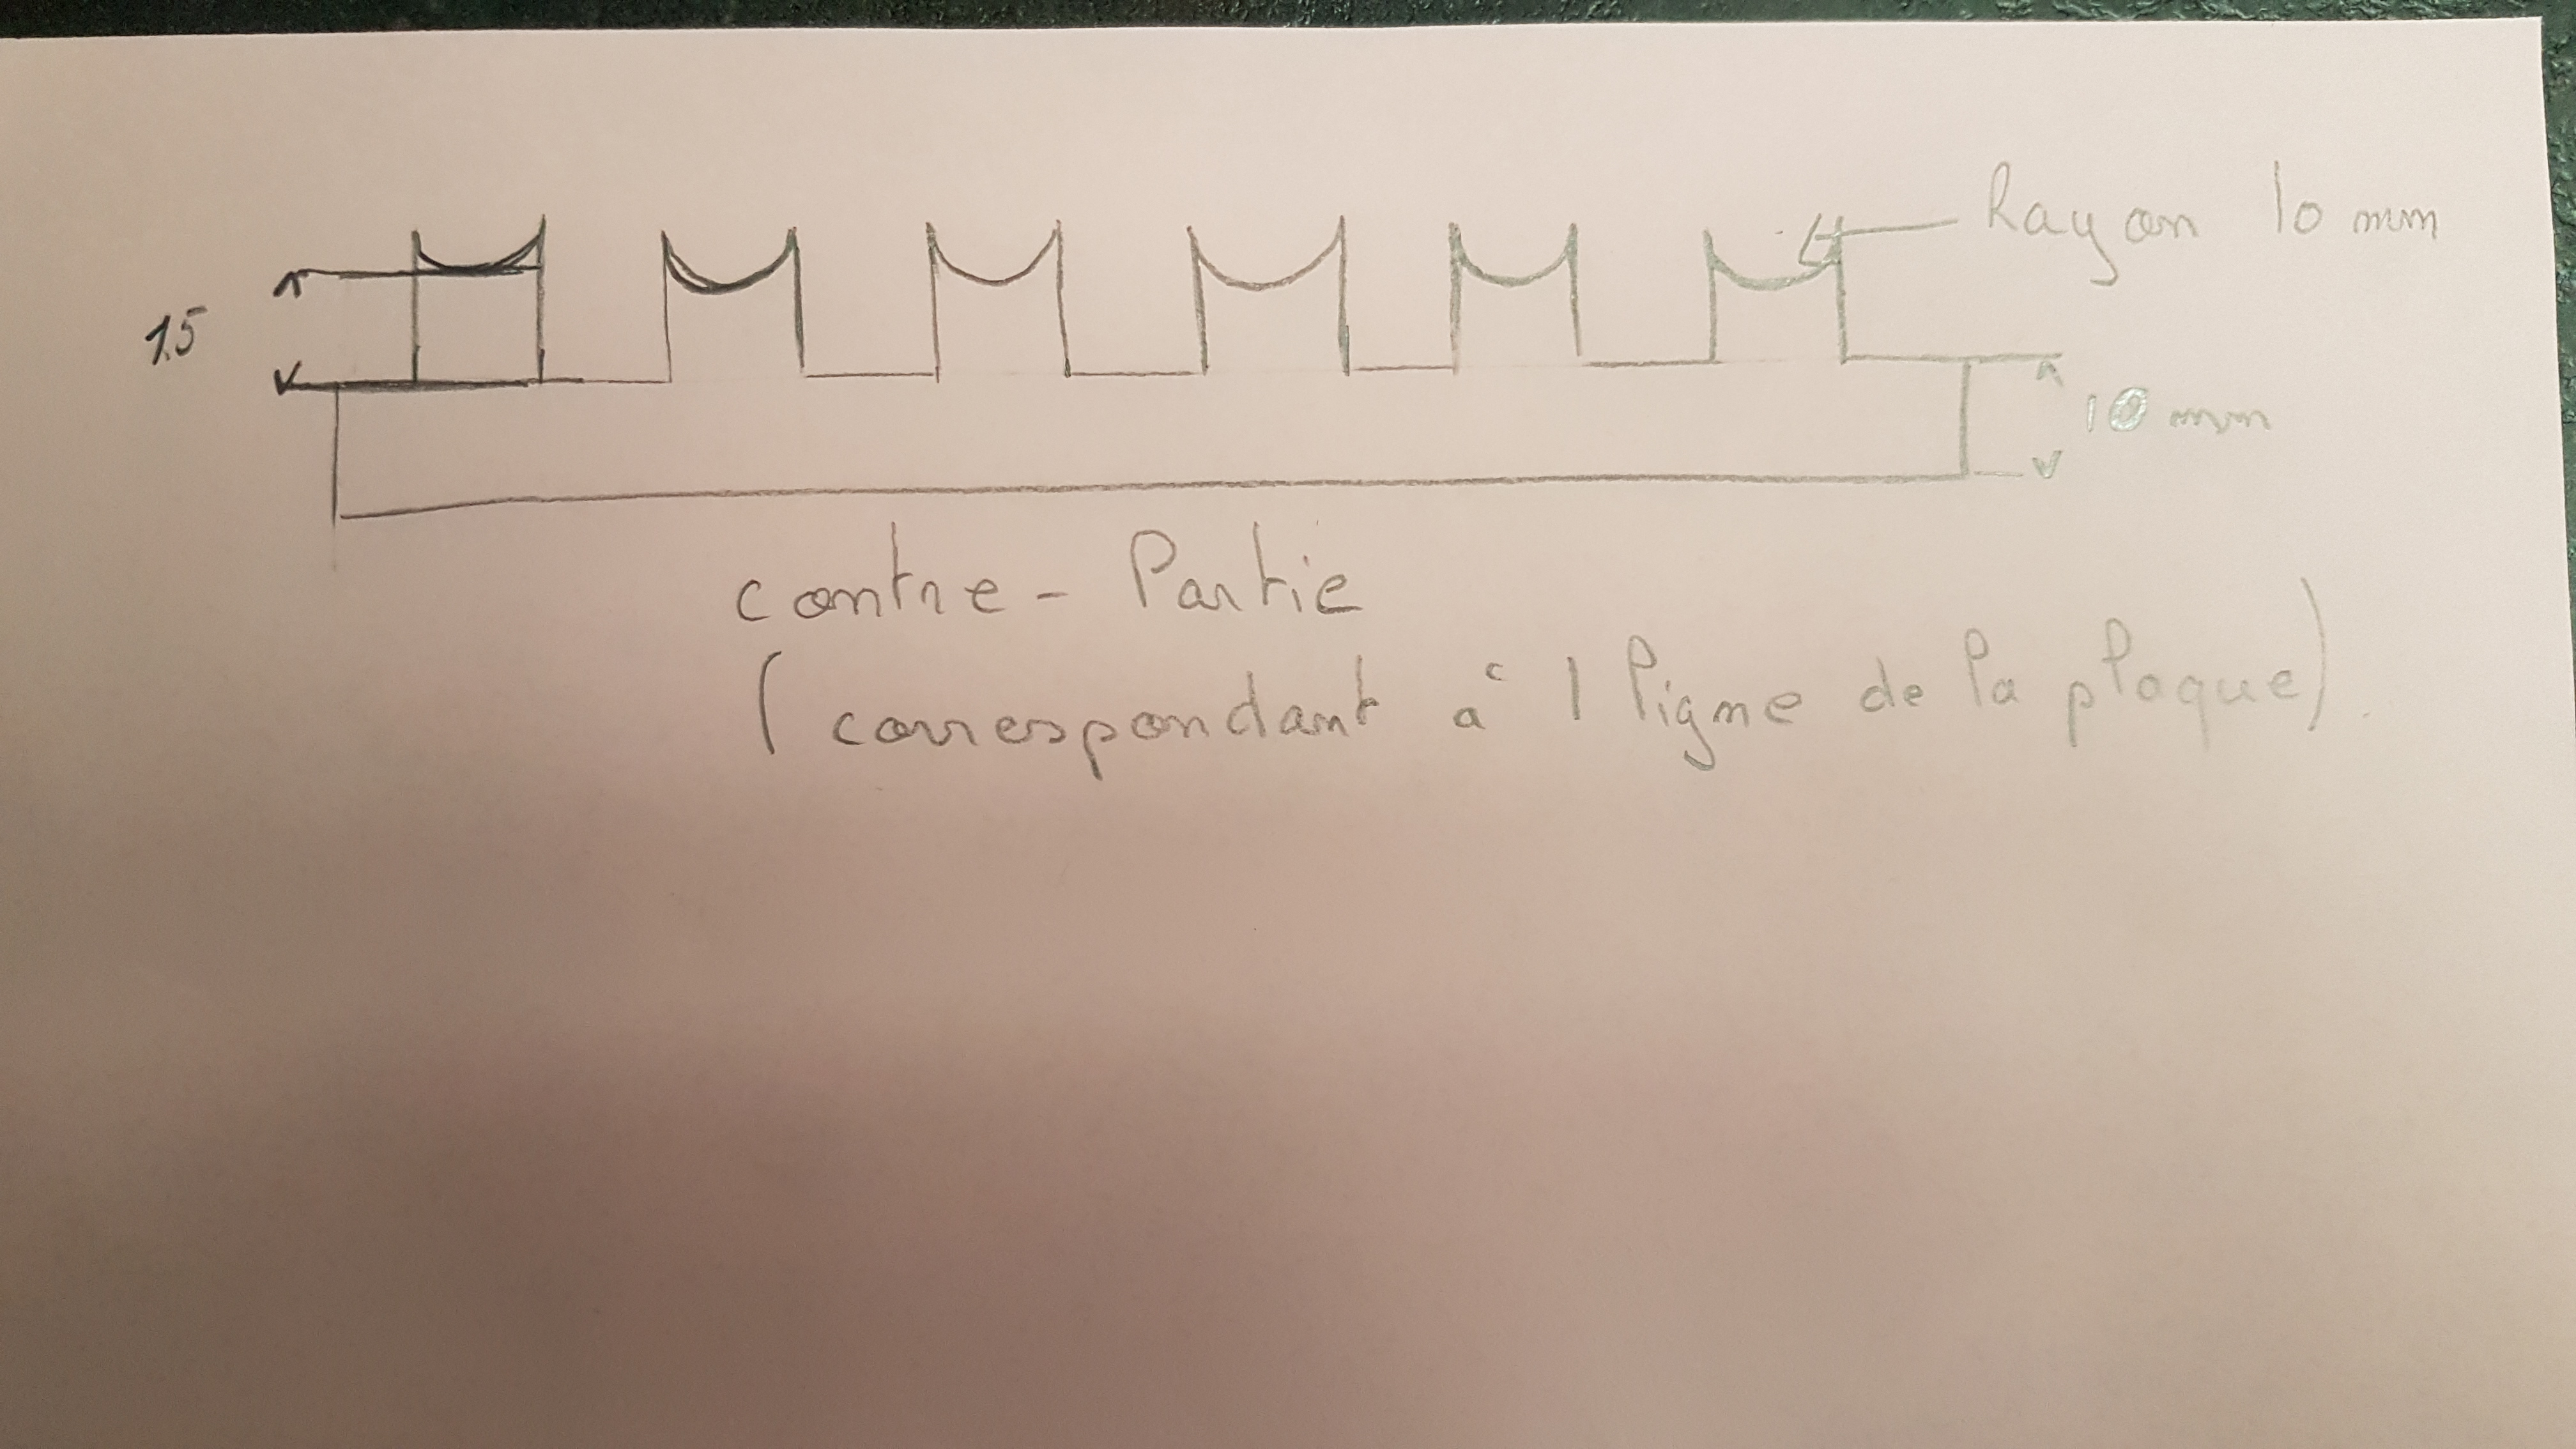 Rayon 10 mm
15
10 mm
contre - Partie
( correspondant à 1 ligne de la plaque).